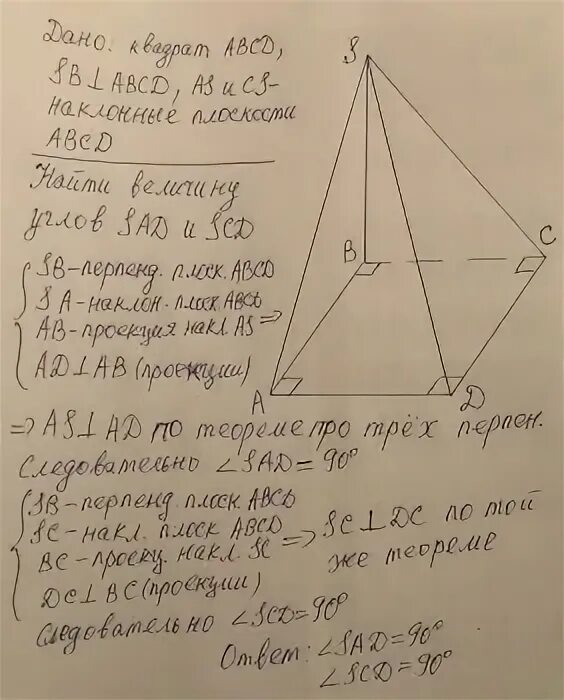 Дано: квадрат ABCD,
SB⊥ABCD, AS и CS-
наклонные плоскости
ABCD
Найти величину
углов SAD и SCD
SB-перпенд. плоск. ABCD
SA-наклон. плоск. ABCD
AB-проекция накл. AS ⇒
AD⊥AB (проекции)
⇒ AS⊥AD по теореме про трёх перпен.
Следовательно ∠SAD = 90°
SB-перпенд. плоск. ABCD
SC-накл. плоск. ABCD
BC-проекц. накл. SC ⇒ SC⊥DC по той
же теореме
DC⊥BC (проекции)
Следовательно ∠SCD = 90°
Ответ: ∠SAD = 90°
∠SCD = 90°
S
B
C
A
D